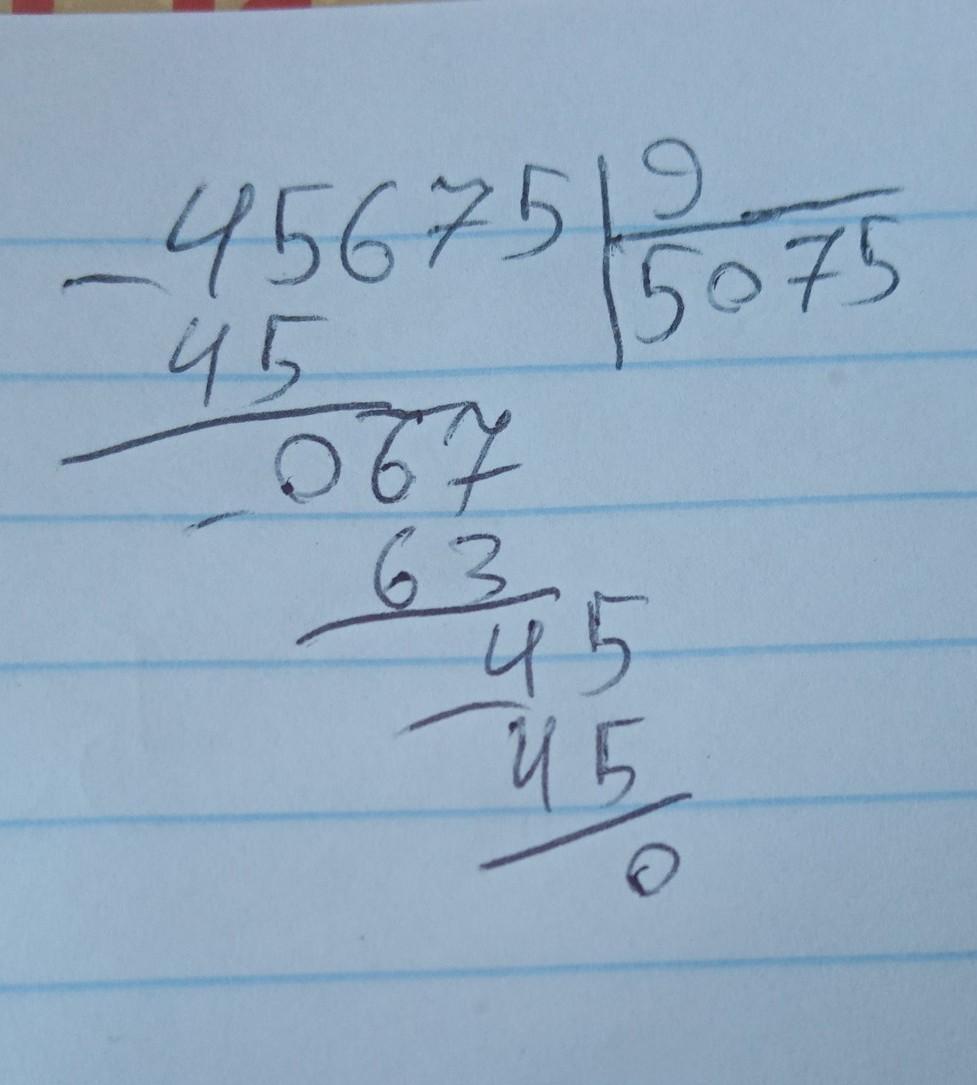 - 45675 | 9
45 | 5075
- 067
63
- 45
45
0